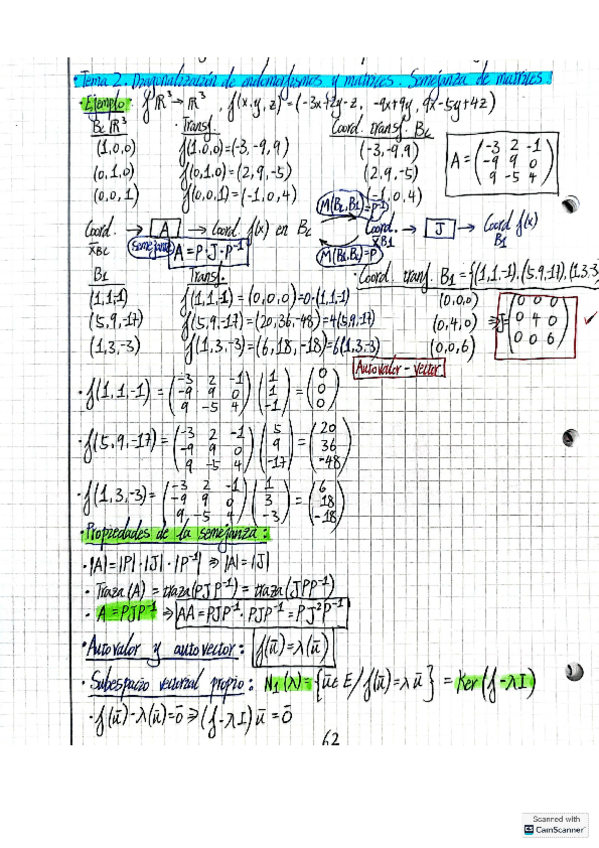 · Tema 2. Diagonalización de endomorfismos y matrices. Semejanza de matrices:
· Ejemplo: f: ℝ³ → ℝ³, f(x,y,z) = (-3x+2y-z, -9x+9y, 9x-5y+4z)
Bc ℝ³ Transf. Coord. transf. Bc
(1,0,0) f(1,0,0)=(-3,-9,9) (-3,-9,9)
(0,1,0) f(0,1,0)=(2,9,-5) (2,9,-5)
(0,0,1) f(0,0,1)=(-1,0,4) (-1,0,4)
A = (-3 2 -1
-9 9 0
9 -5 4)
M(Bc,B1)=P⁻¹
Coord. x̄Bc → A → Coord. f(x) en Bc Coord. x̄B1 → J → Coord f(x) B1
Semejantes A=P·J·P⁻¹ M(B1,Bc)=P
B1 Transf. · Coord. transf. B1={(1,1,-1),(5,9,-17),(1,3,-3)
(1,1,-1) f(1,1,-1)=(0,0,0)=0·(1,1,-1) (0,0,0)
(5,9,-17) f(5,9,-17)=(20,36,-48)=4(5,9,-17) (0,4,0)
(1,3,-3) f(1,3,-3)=(6,18,-18)=6(1,3,-3) (0,0,6)
⇒ J= (0 0 0
0 4 0
0 0 6) ✓
Autovalor - vector
· f(1,1,-1) = (-3 2 -1
-9 9 0
9 -5 4) (1
1
-1) = (0
0
0)
· f(5,9,-17) = (-3 2 -1
-9 9 0
9 -5 4) (5
9
-17) = (20
36
-48)
· f(1,3,-3) = (-3 2 -1
-9 9 0
9 -5 4) (1
3
-3) = (6
18
-18)
· Propiedades de la semejanza:
· |A|=|P|·|J|·|P⁻¹| ⇒ |A|=|J|
· Traza(A) = traza(PJP⁻¹) = traza(JPP⁻¹)
· A=PJP⁻¹ ⇒ AA=PJP⁻¹·PJP⁻¹=PJ²P⁻¹
· Autovalor y autovector: f(ū)=λ(ū)
· Subespacio vectorial propio: N₁(λ)={ū∈E/f(ū)=λū} = Ker(f-λI)
· f(ū)-λ(ū)=ō ⇒ (f-λI)ū=ō
62
Scanned with
CamScanner